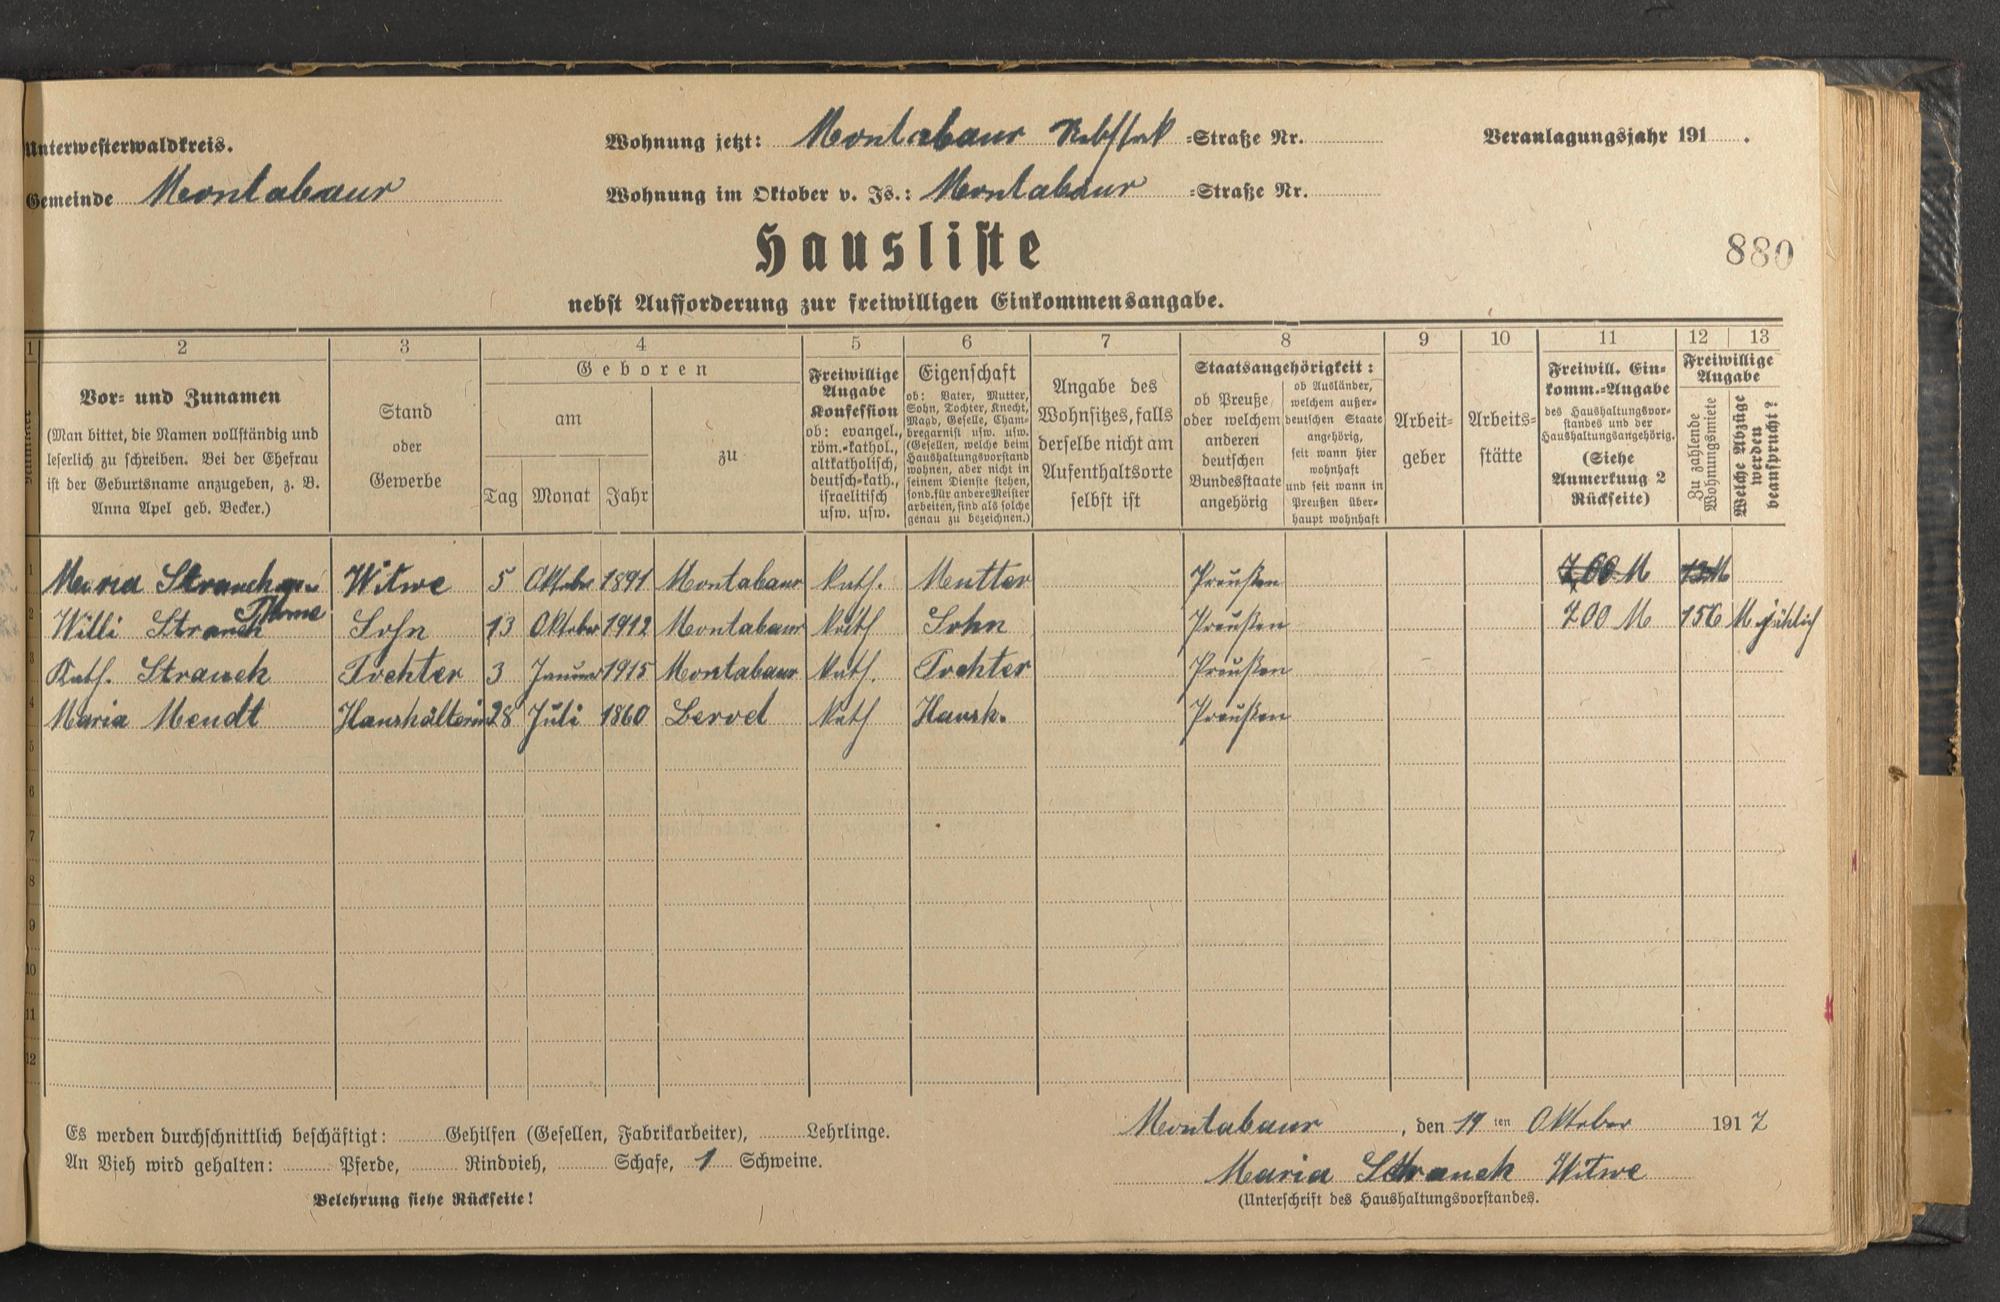 Unterwesterwaldkreis.
Wohnung jetzt: Montabaur Rebstock =Straße Nr.
Veranlagungsjahr 191 .
Gemeinde Montabaur
Wohnung im Oktober v. Js.: Montabaur =Straße Nr.
Hausliste
880
nebst Aufforderung zur freiwilligen Einkommensangabe.
1 2 3 4 5 6 7 8 9 10 11 12 13
Nummer
Vor= und Zunamen
(Man bittet, die Namen vollständig und
leserlich zu schreiben. Bei der Ehefrau
ist der Geburtsname anzugeben, z. B.
Anna Apel geb. Becker.)
Stand
oder
Gewerbe
Geboren
am
Tag Monat Jahr
zu
Freiwillige
Angabe
Konfession
ob: evangel.,
röm.=kathol.,
altkatholisch,
deutsch=kath.,
israelitisch
usw. usw.
Eigenschaft
ob: Vater, Mutter,
Sohn, Tochter, Knecht,
Magd, Geselle, Cham=
bregarnist usw. usw.
(Gesellen, welche beim
Haushaltungsvorstand
wohnen, aber nicht in
seinem Dienste stehen,
sond. für andere Meister
arbeiten, sind als solche
genau zu bezeichnen.)
Angabe des
Wohnsitzes, falls
derselbe nicht am
Aufenthaltsorte
selbst ist
Staatsangehörigkeit:
ob Preuße,
oder welchem
anderen
deutschen
Bundesstaate
angehörig
ob Ausländer,
welchem außer=
deutschen Staate
angehörig,
seit wann hier
wohnhaft
und seit wann in
Preußen über=
haupt wohnhaft
Arbeit=
geber
Arbeits=
stätte
Freiwill. Ein=
komm.=Angabe
des Haushaltungsvor=
standes und der
Haushaltungsangehörig.
(Siehe
Anmerkung 2
Rückseite)
Freiwillige
Angabe
Zu zahlende
Wohnungsmiete
Welche Abzüge
werden
beansprucht?
1 Maria Strauch Witwe 5 Oktober 1891 Montabaur Kath. Mutter Preußen 700 M 13 M
Thome
2 Willi Strauch Sohn 13 Oktober 1912 Montabaur Kath Sohn Preußen 700 M 156 M jährlich
3 Kath. Strauch Tochter 3 Januar 1915 Montabaur Kath. Tochter Preußen
4 Maria Mendt Haushälterin 28 Juli 1860 Berod Kath Haush. Preußen
5
6
7
8
9
10
11
12
Es werden durchschnittlich beschäftigt: Gehilfen (Gesellen, Fabrikarbeiter), Lehrlinge.
An Vieh wird gehalten: Pferde, Rindvieh, Schafe, 1 Schweine.
Belehrung siehe Rückseite!
Montabaur , den 19 ten Oktober 1917
Maria Strauch Witwe
(Unterschrift des Haushaltungsvorstandes.